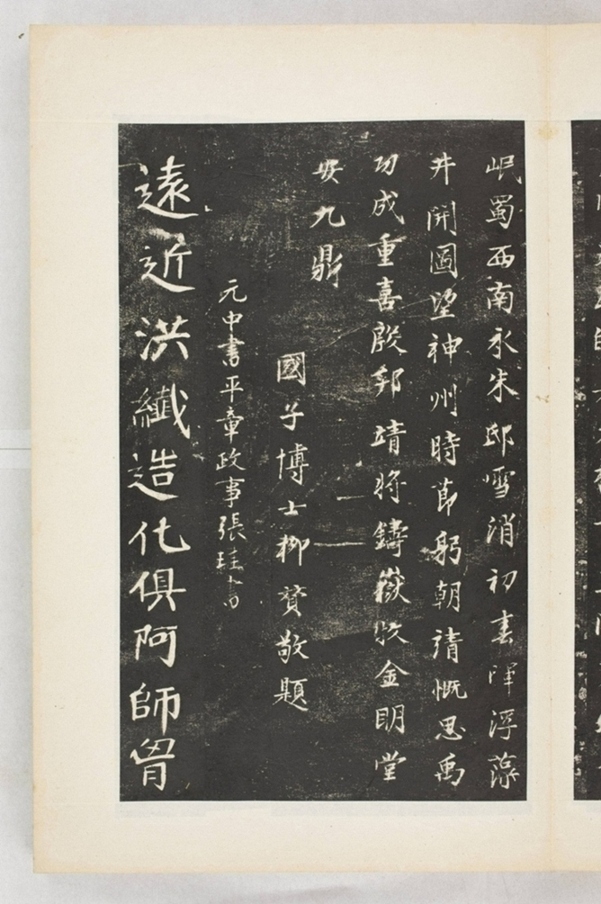 岷蜀西南永朱邸雪消初春暉浮藻
井開圖望神州時節躬朝請慨思禹
功成重喜殷邦靖將鑄嶽牧金明堂
安九鼎
國子博士柳貫敬題
元中書平章政事張珪書
遠近洪纖造化俱阿師胷